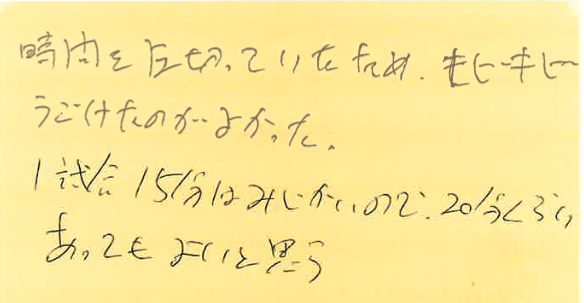 時間を区切っていたため、キビキビ
うごけたのがよかった。
1試合15分はみじかいので、20分くらい
あってもよいと思う